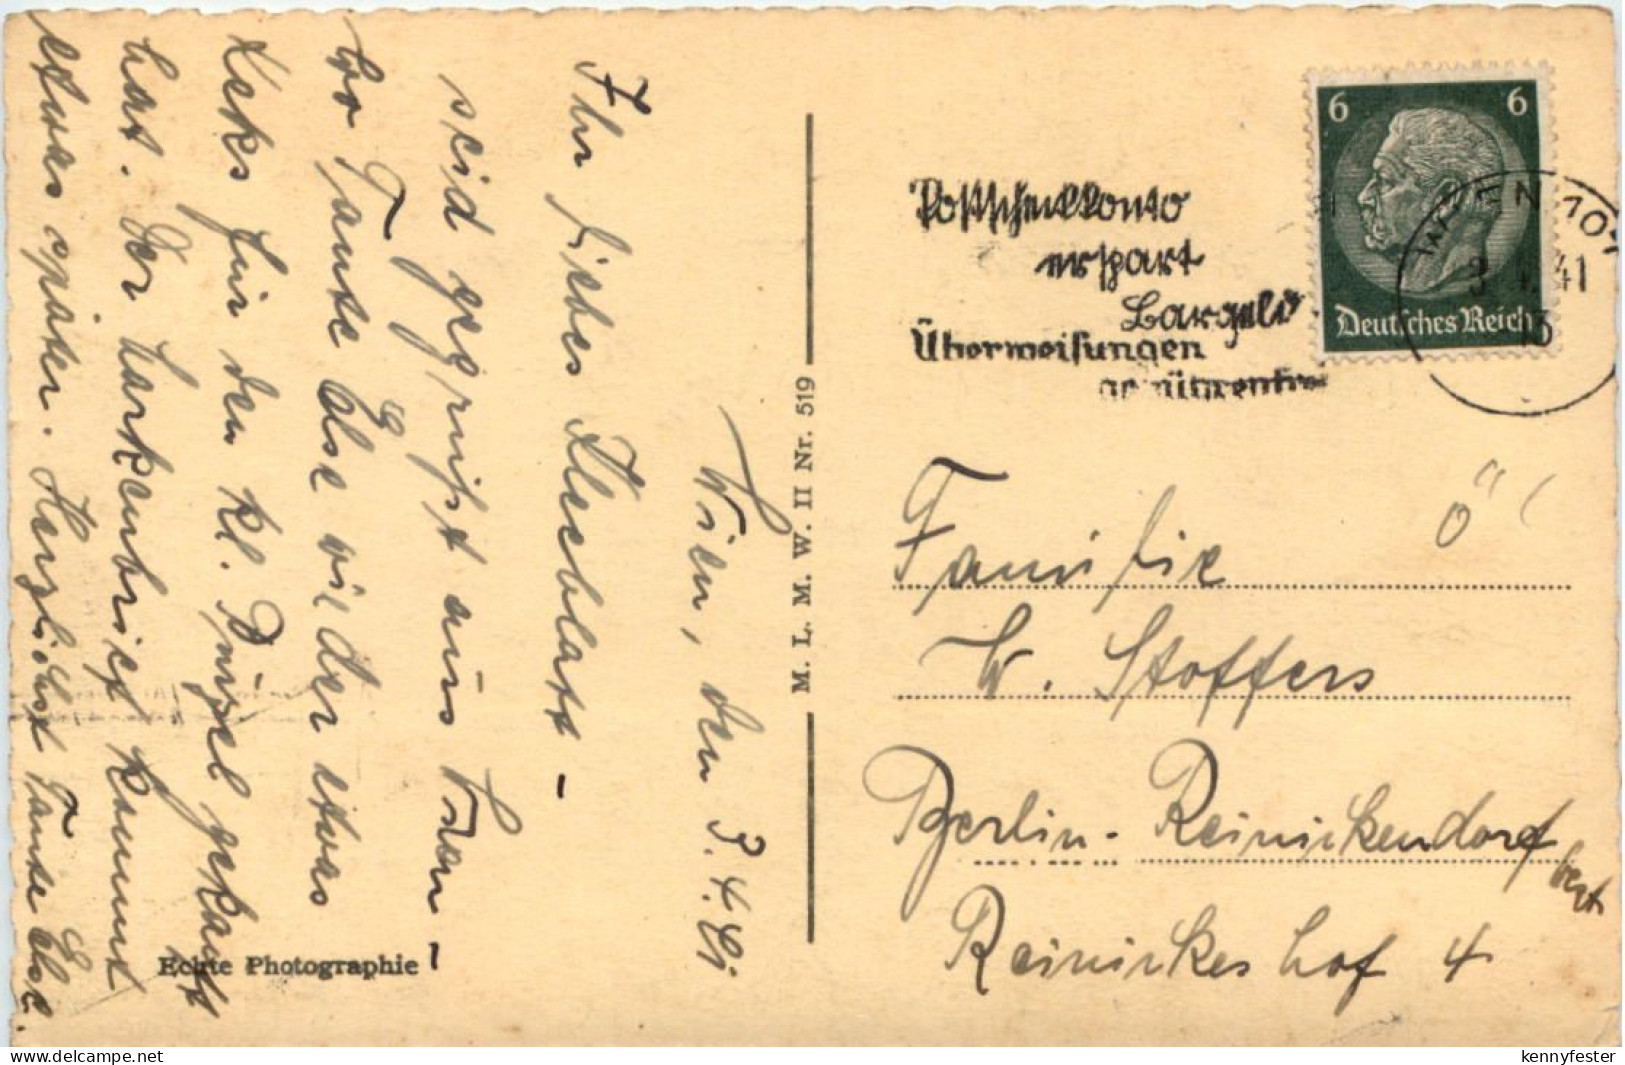 Wien, den 3.4.41
Ihr liebes Kleeblatt –
seid gegrüßt aus
wo Tante Else wieder etwas
Keks für den kl. Jürgel gekauft
hat. Der Markenbrief kommt
etwas später. Herzlichst Tante Else.
Echte Photographie
M. L. M. W. II Nr. 519
Postscheckkonto
erspart
Bargeld
Überweisungen
6 6
Deutsches Reich
WIEN 101
3 4 41
Familie
W. Stoffers
Berlin-Reinickendorf
West
Reinickes Hof 4
Ö
www.delcampe.net
kennyfester